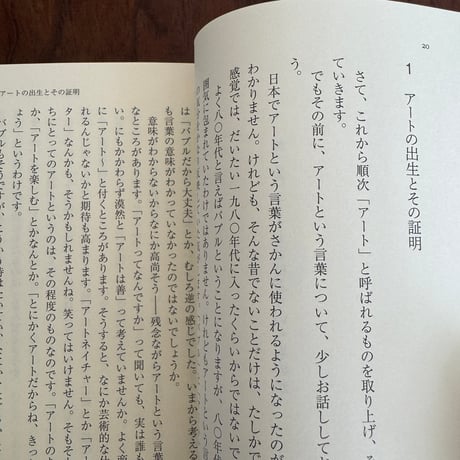 20
1 アートの出生とその証明
さて、これから順次「アート」と呼ばれるものを取り上げ、
ていきます。
でもその前に、アートという言葉について、少しお話してお
う。
日本でアートという言葉がさかんに使われるようになったのが
わかりません。けれども、そんな昔でないことだけは、たしかで
感覚では、だいたい一九八〇年代に入ったくらいからではないで
よく八〇年代と言えばバブルということになりますが、八〇年代
囲気に包まれていたわけではありません。けれどもアートという
アートの出生とその証明
は「バブルだから大丈夫」とか、むしろ逆の感じでした。いまから考える
も言葉の意味がわかっていなかったのではないでしょうか。
意味がわからないからなにか高尚そう――残念ながらアートという言
なところがあります。「アートってなんですか」って聞いても、実は誰も
い。にもかかわらず漠然と「アートは善」って考えていませんか。よく商
に「アート〜」と付くところがあります。そうすると、なにか芸術的な仕
れるんじゃないかと期待も高まります。「アートネイチャー」とか「アー
ター」なんかも、そうかもしれませんね。笑ってはいけません。そもそも
ちにとってのアートというのは、その程度のものなのです。「アートのあ
か、「アートを楽しむ」とかなんとか。「とにかくアートだからね、きっ
よう」というわけです。